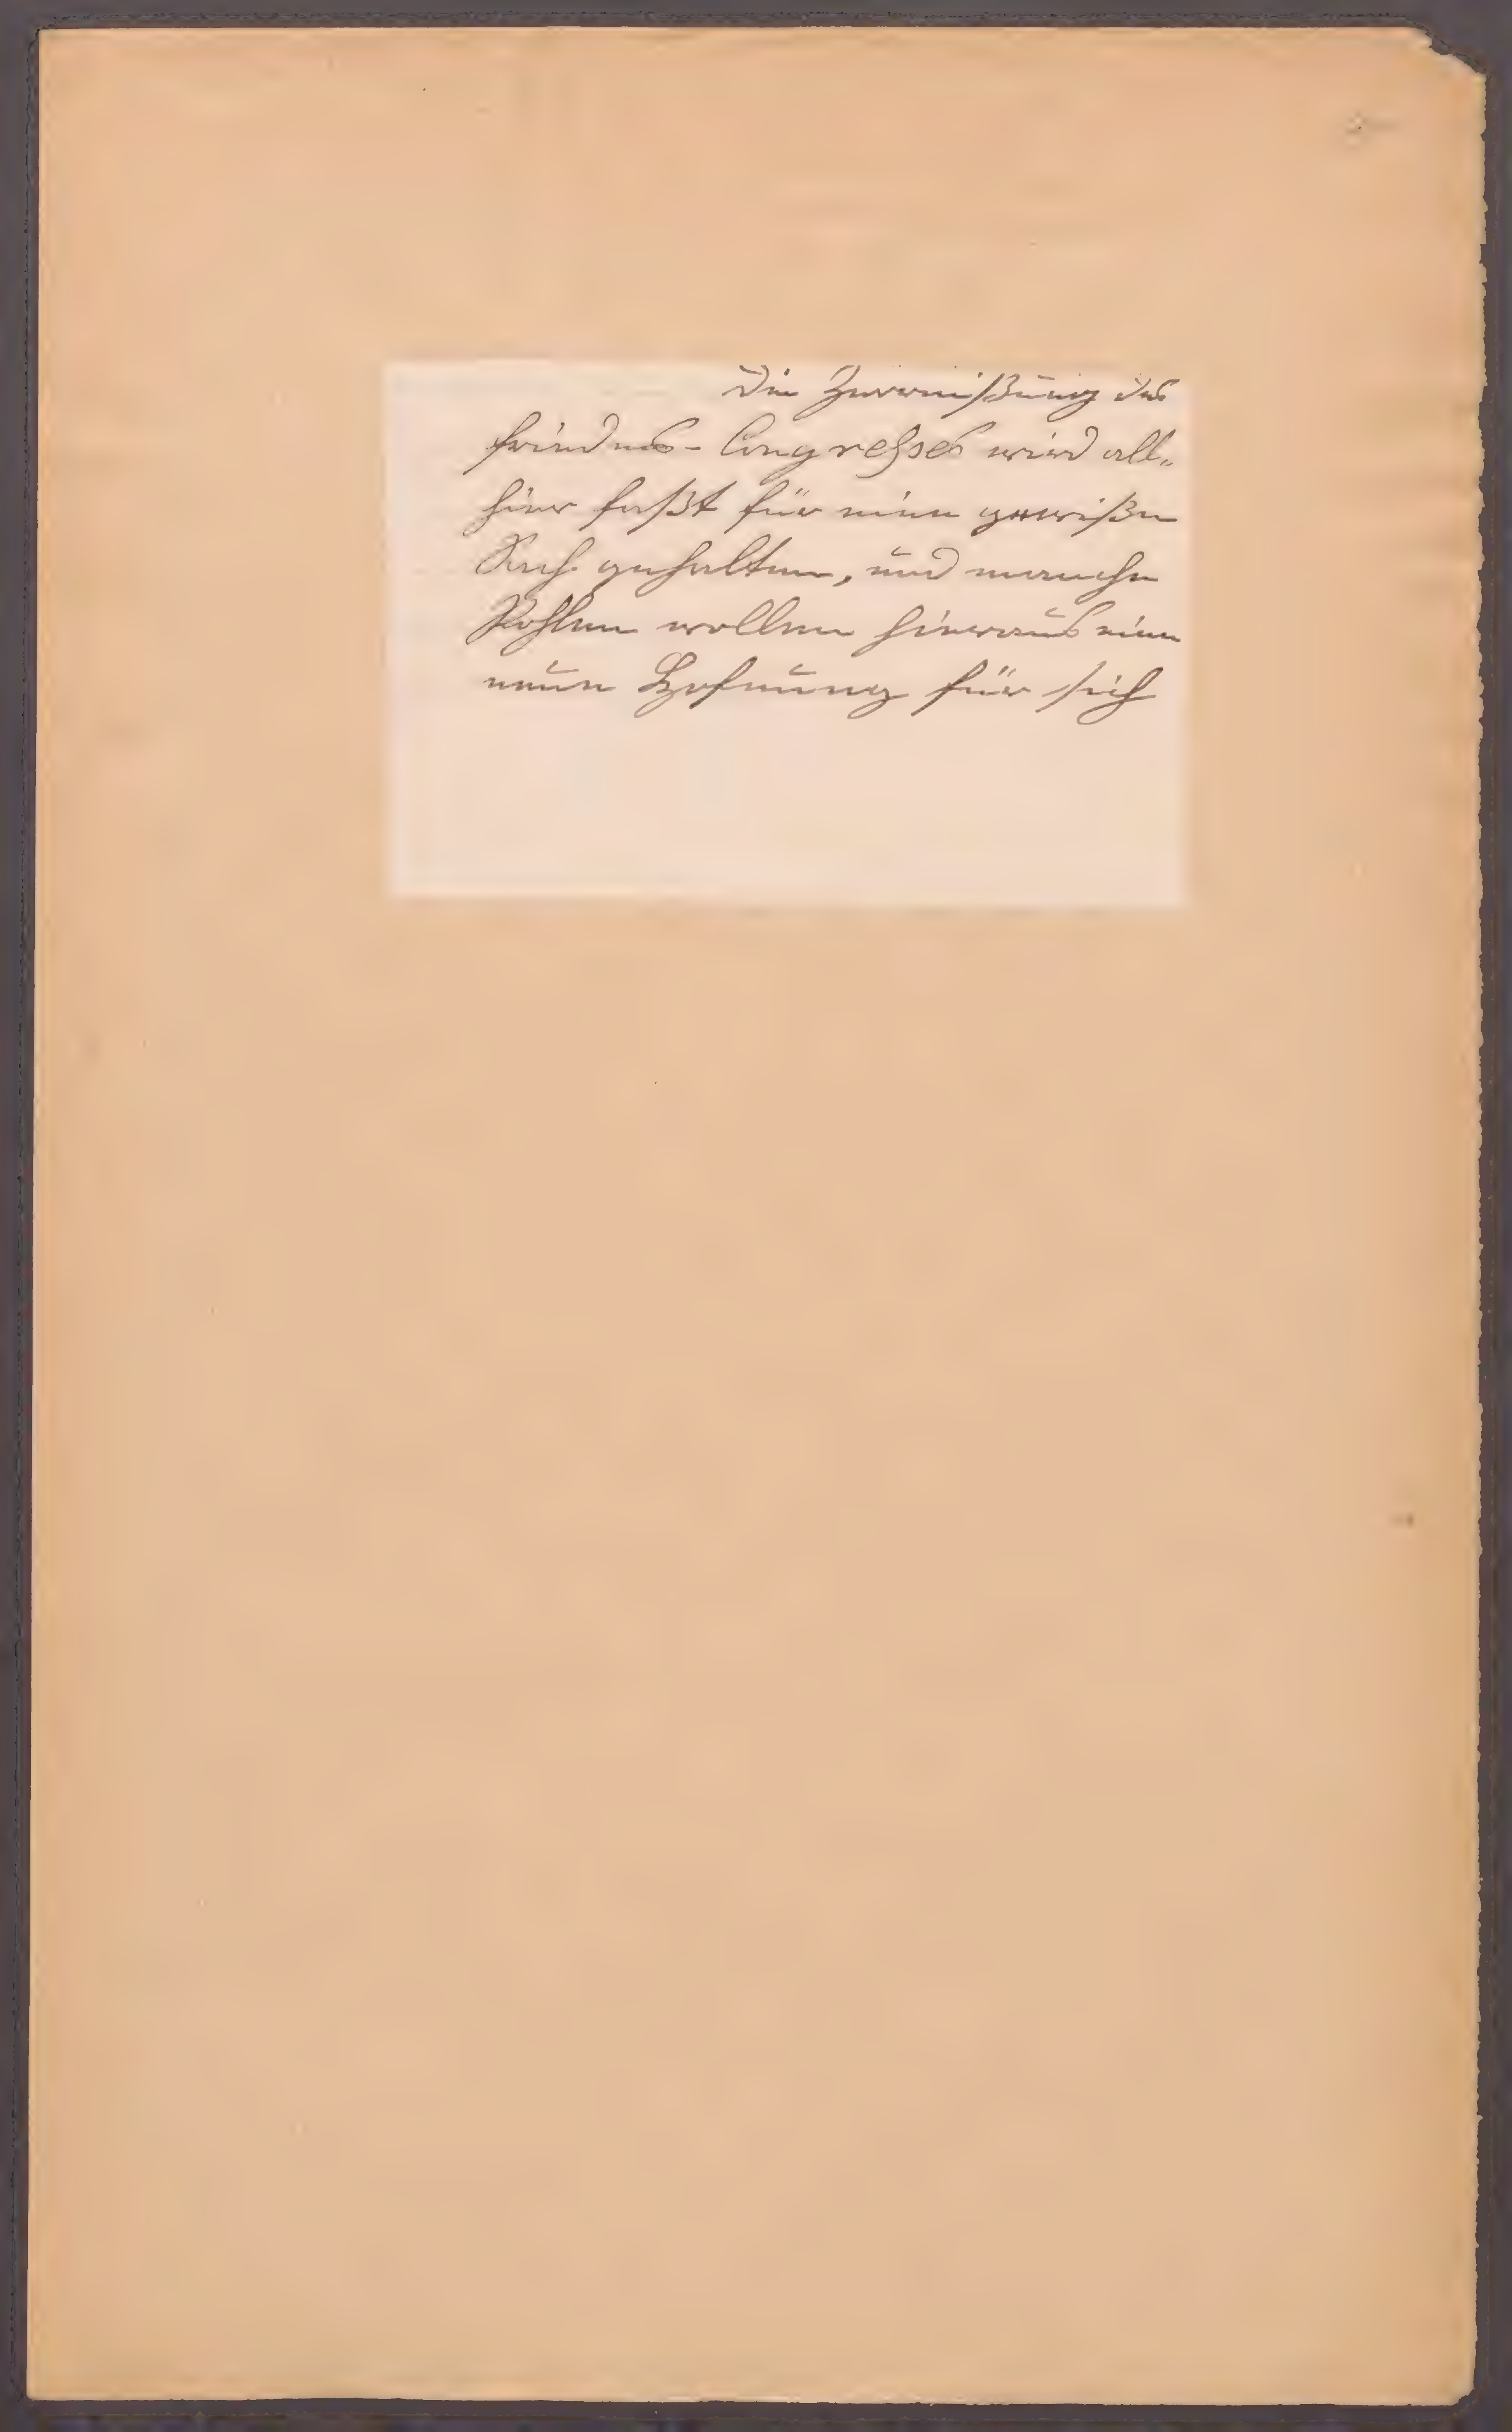 Die Zerreißung des
Friedens-Congreßes wird all„
hier faßt für eine gewiße
Sach gehalten, und manche
Pohlen wollen hieraus eine
neue Hofnung für sich